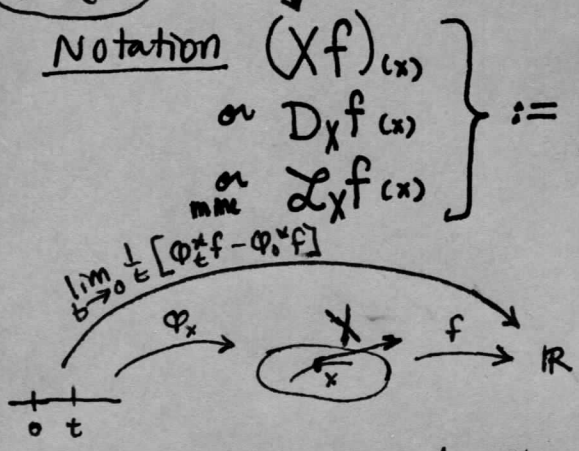 Notation (Xf)(x)
or D_X f (x)
or ℒ_X f (x) :=
lim t→0 1/t [φ_t^* f - φ_0^* f]
φ_x X f
x ℝ
0 t